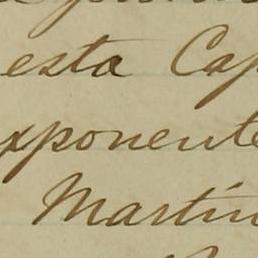 esta Cap
xponente
Martin